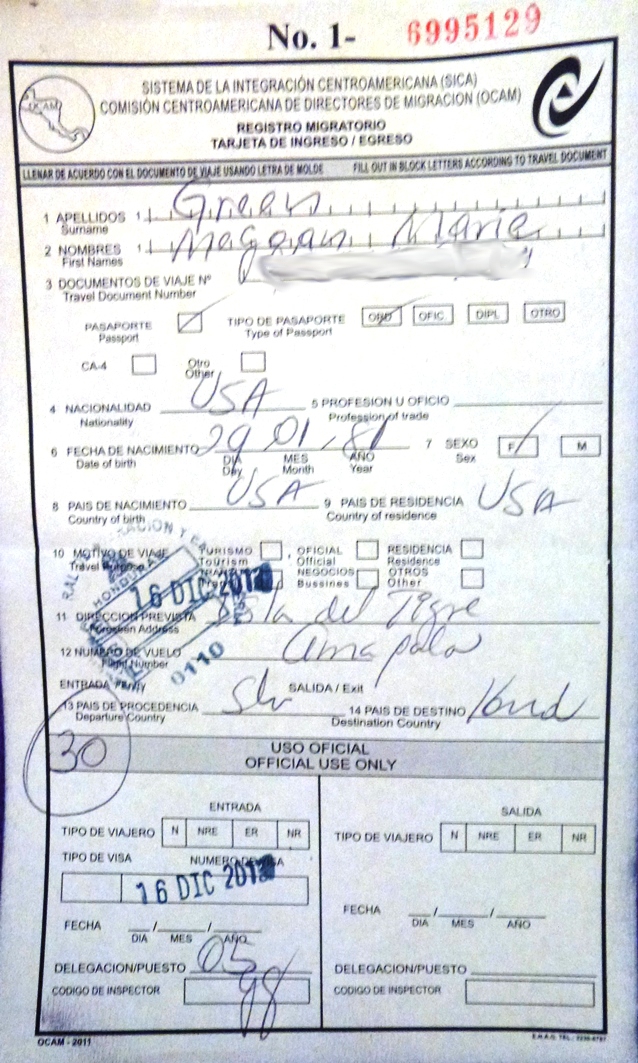 No. 1- 6995129
OCAM
SISTEMA DE LA INTEGRACIÓN CENTROAMERICANA (SICA)
COMISIÓN CENTROAMERICANA DE DIRECTORES DE MIGRACION (OCAM)
REGISTRO MIGRATORIO
TARJETA DE INGRESO / EGRESO
LLENAR DE ACUERDO CON EL DOCUMENTO DE VIAJE USANDO LETRA DE MOLDE FILL OUT IN BLOCK LETTERS ACCORDING TO TRAVEL DOCUMENT
1 APELLIDOS Green
Surname
2 NOMBRES Megean Marie
First Names
3 DOCUMENTOS DE VIAJE Nº
Travel Document Number
PASAPORTE TIPO DE PASAPORTE ORD OFIC DIPL OTRO
Passport Type of Passport
CA-4 Otro
Other
4 NACIONALIDAD USA 5 PROFESION U OFICIO
Nationality Profession of trade
6 FECHA DE NACIMIENTO 29 01 81 7 SEXO F M
Date of birth DIA MES AÑO Sex
Day Month Year
8 PAIS DE NACIMIENTO USA 9 PAIS DE RESIDENCIA USA
Country of birth Country of residence
10 MOTIVO DE VIAJE TURISMO OFICIAL RESIDENCIA
Travel Purpose Tourism Official Residence
NEGOCIOS OTROS
Bussines Other
HONDURAS
16 DIC 201
11 DIRECCION PREVISTA Isla del Tigre
Foreseen Address
12 NUMERO DE VUELO Amapala
Flight Number
0110
ENTRADA SALIDA / Exit
13 PAIS DE PROCEDENCIA Slv 14 PAIS DE DESTINO Hond
Departure Country Destination Country
30
USO OFICIAL
OFFICIAL USE ONLY
ENTRADA SALIDA
TIPO DE VIAJERO N NRE ER NR TIPO DE VIAJERO N NRE ER NR
TIPO DE VISA NUMERO DE VISA
16 DIC 201
FECHA / / FECHA / /
DIA MES AÑO DIA MES AÑO
DELEGACION/PUESTO 05 DELEGACION/PUESTO
CODIGO DE INSPECTOR 98 CODIGO DE INSPECTOR
OCAM - 2011